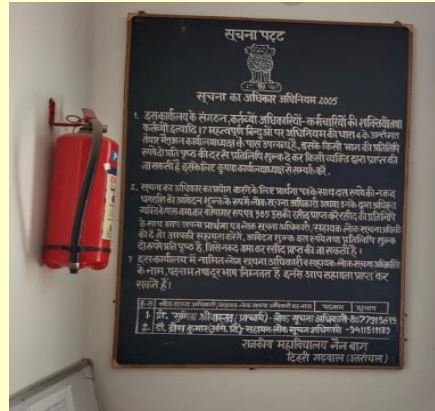 सूचना पट्ट
सूचना का अधिकार अधिनियम 2005
1. इस कार्यालय के संगठन, कर्तव्यों अधिकारियों- कर्मचारियों की शक्तियों तथा
कर्तव्यों इत्यादि 17 महत्वपूर्ण बिन्दुओं पर अधिनियम की धारा 4 के अन्तर्गत
तैयार मैनुअल कार्यालयाध्यक्ष के पास उपलब्ध है, इसके किसी भाग की प्रतिलिपि
रुपये दो प्रति पृष्ठ की दर से प्रतिलिपि शुल्क दे कर किसी व्यक्ति द्वारा प्राप्त की
जा सकती है इसके लिए कृपया कार्यालयाध्यक्ष से सम्पर्क करें .
2. सूचना का अधिकार का प्रयोग करने के लिए प्रार्थना पत्र के साथ दस रुपये की नकद
धनराशि की आवेदन शुल्क के रूप में लोक सूचना अधिकारी अथवा उनके द्वारा अधिकृत
व्यक्ति के पास जमा कर कोषागार रूप पत्र 385 उसकी रसीद प्राप्त करें रसीद की प्रतिलिपि
के साथ आप अपना प्रार्थना पत्र लोक सूचना अधिकारी / सहायक लोक सूचना अधिकारी
को दें जो आपकी सहायता करेंगे, आवेदन शुल्क दस रुपये तथा प्रतिलिपि शुल्क
दो रुपये प्रति पृष्ठ है, जिसे नकद जमा कर रसीद प्राप्त की जा सकती है ।
3 इस कार्यालय में नामित लोक सूचना अधिकारी व सहायक लोक सूचना अधिकारी
के नाम, पदनाम तथा दूरभाष निम्नवत है इनसे आप सहायता प्राप्त कर
सकते हैं।
क्र.सं लोक सूचना अधिकारी/सहायक लोक सूचना अधिकारी का नाम पदनाम दूरभाष
1. श्रीवास्तव (प्राचार्य)- लोक सूचना अधिकारी-
2. कुमार सहायक लोक सूचना अधिकारी -9411511183
राजकीय महाविद्यालय नैनबाग
टिहरी गढ़वाल (उत्तरांचल)